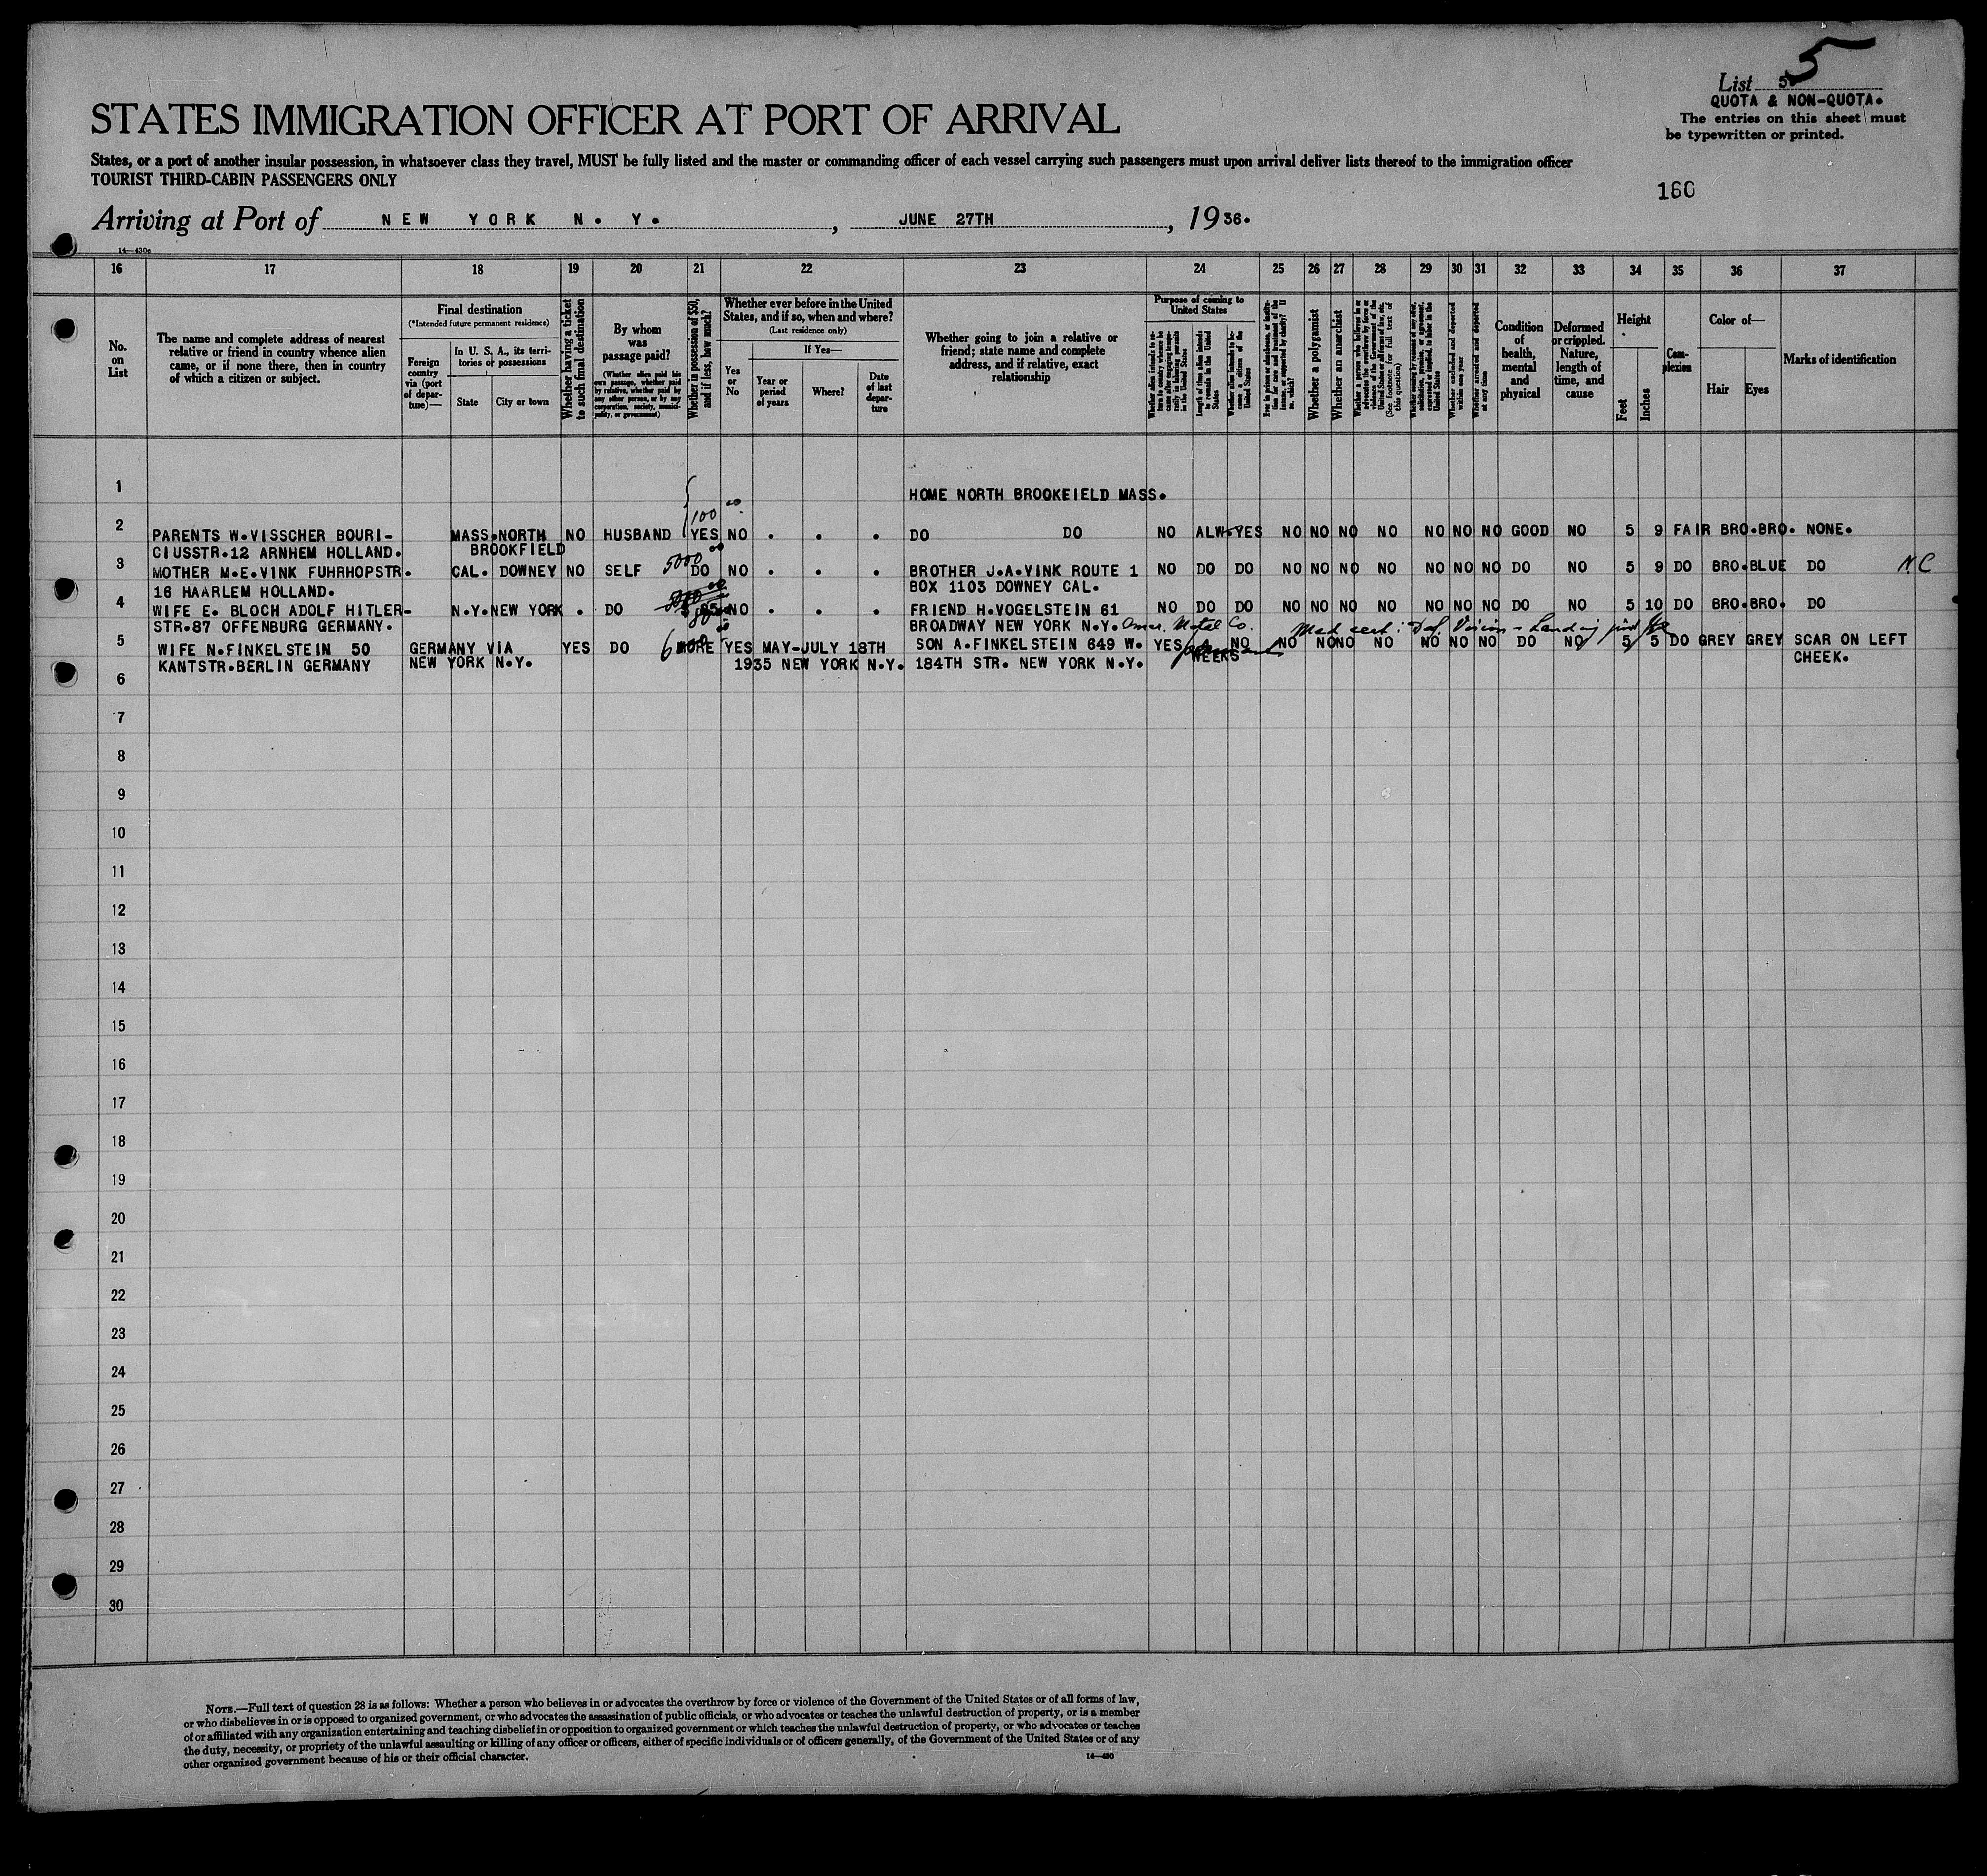 5
List 5
QUOTA & NON-QUOTA.
The entries on this sheet must
be typewritten or printed.
STATES IMMIGRATION OFFICER AT PORT OF ARRIVAL
States, or a port of another insular possession, in whatsoever class they travel, MUST be fully listed and the master or commanding officer of each vessel carrying such passengers must upon arrival deliver lists thereof to the immigration officer
TOURIST THIRD-CABIN PASSENGERS ONLY
160
Arriving at Port of NEW YORK N. Y. , JUNE 27TH , 1936.
14—430c
16 17 18 19 20 21 22 23 24 25 26 27 28 29 30 31 32 33 34 35 36 37
No.
on
List
The name and complete address of nearest
relative or friend in country whence alien
came, or if none there, then in country
of which a citizen or subject.
Final destination
(*Intended future permanent residence)
Foreign
country
via (port
of depar-
ture)—
In U. S. A., its terri-
tories or possessions
State
City or town
Whether having a ticket
to such final destination
By whom
was
passage paid?
(Whether alien paid his
own passage, whether paid
by relative, whether paid by
any other person, or by any
corporation, society, munici-
pality, or government)
Whether in possession of $50,
and if less, how much?
Whether ever before in the United
States, and if so, when and where?
(Last residence only)
Yes
or
No
If Yes—
Year or
period
of years
Where?
Date
of last
depar-
ture
Whether going to join a relative or
friend; state name and complete
address, and if relative, exact
relationship
Purpose of coming to
United States
Whether alien intends to re-
turn to country whence he
came after engaging tempo-
rarily in laboring pursuits
in the United States
Length of time alien intends
to remain in the United
States
Whether alien intends to be-
come a citizen of the
United States
Whether a polygamist
Whether an anarchist
(See footnote for full text of
this question)
Whether excluded and deported
within one year
Whether arrested and deported
at any time
Condition
of
health,
mental
and
physical
Deformed
or crippled.
Nature,
length of
time, and
cause
Height
Feet
Inches
Com-
plexion
Color of—
Hair
Eyes
Marks of identification
1 HOME NORTH BROOKFIELD MASS.
100 00
2 PARENTS W.VISSCHER BOURI- MASS. NORTH NO HUSBAND YES NO . . . DO DO NO ALW. YES NO NO NO NO NO NO NO GOOD NO 5 9 FAIR BRO. BRO. NONE.
CIUSSTR.12 ARNHEM HOLLAND. BROOKFIELD
3 MOTHER M.E.VINK FUHRHOPSTR. CAL. DOWNEY NO SELF 5000 00 DO NO . . . BROTHER J.A.VINK ROUTE 1 NO DO DO NO NO NO NO NO NO NO DO NO 5 9 DO BRO. BLUE DO NC
16 HAARLEM HOLLAND. BOX 1103 DOWNEY CAL.
4 WIFE E. BLOCH ADOLF HITLER- N.Y. NEW YORK . DO NO . . . FRIEND H.VOGELSTEIN 61 NO DO DO NO NO NO NO NO NO NO DO NO 5 10 DO BRO. BRO. DO
STR.87 OFFENBURG GERMANY. 80 BROADWAY NEW YORK N.Y. Amer. Metal Co. Med cert: Def. Vision - Landing
5 WIFE N.FINKELSTEIN 50 GERMANY VIA YES DO MORE YES MAY-JULY 18TH SON A.FINKELSTEIN 649 W. YES NO NO NO NO NO NO NO NO DO NO 5 5 DO GREY GREY SCAR ON LEFT
KANTSTR.BERLIN GERMANY NEW YORK N.Y. 1935 NEW YORK N.Y. 184TH STR. NEW YORK N.Y. WEEKS CHEEK.
6
7
8
9
10
11
12
13
14
15
16
17
18
19
20
21
22
23
24
25
26
27
28
29
30
NOTE.—Full text of question 28 is as follows: Whether a person who believes in or advocates the overthrow by force or violence of the Government of the United States or of all forms of law,
or who disbelieves in or is opposed to organized government, or who advocates the assassination of public officials, or who advocates or teaches the unlawful destruction of property, or is a member
of or affiliated with any organization entertaining and teaching disbelief in or opposition to organized government or which teaches the unlawful destruction of property, or who advocates or teaches
the duty, necessity, or propriety of the unlawful assaulting or killing of any officer or officers, either of specific individuals or of officers generally, of the Government of the United States or of any
other organized government because of his or their official character.
14—430